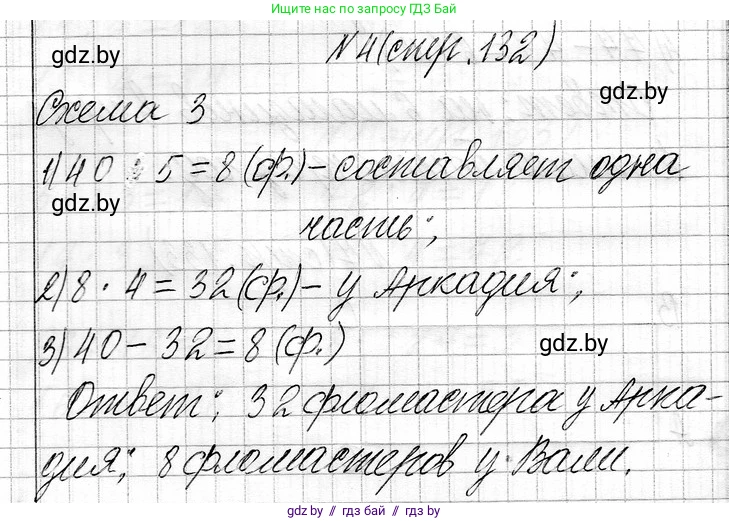 Ищите нас на сайте по запросу ГДЗ Бай
gdz.by
N4(стр.132)
gdz.by
Схема 3
1) 40 : 5 = 8 (ф.) - составляет одна
gdz.by
часть;
2) 8 · 4 = 32 (ф.) - у Аркадия;
3) 40 - 32 = 8 (ф.)
gdz.by
Ответ: 32 фломастера у Арка-
дия; 8 фломастеров у Вали.
gdz.by
gdz.by // гдз бай // gdz.by